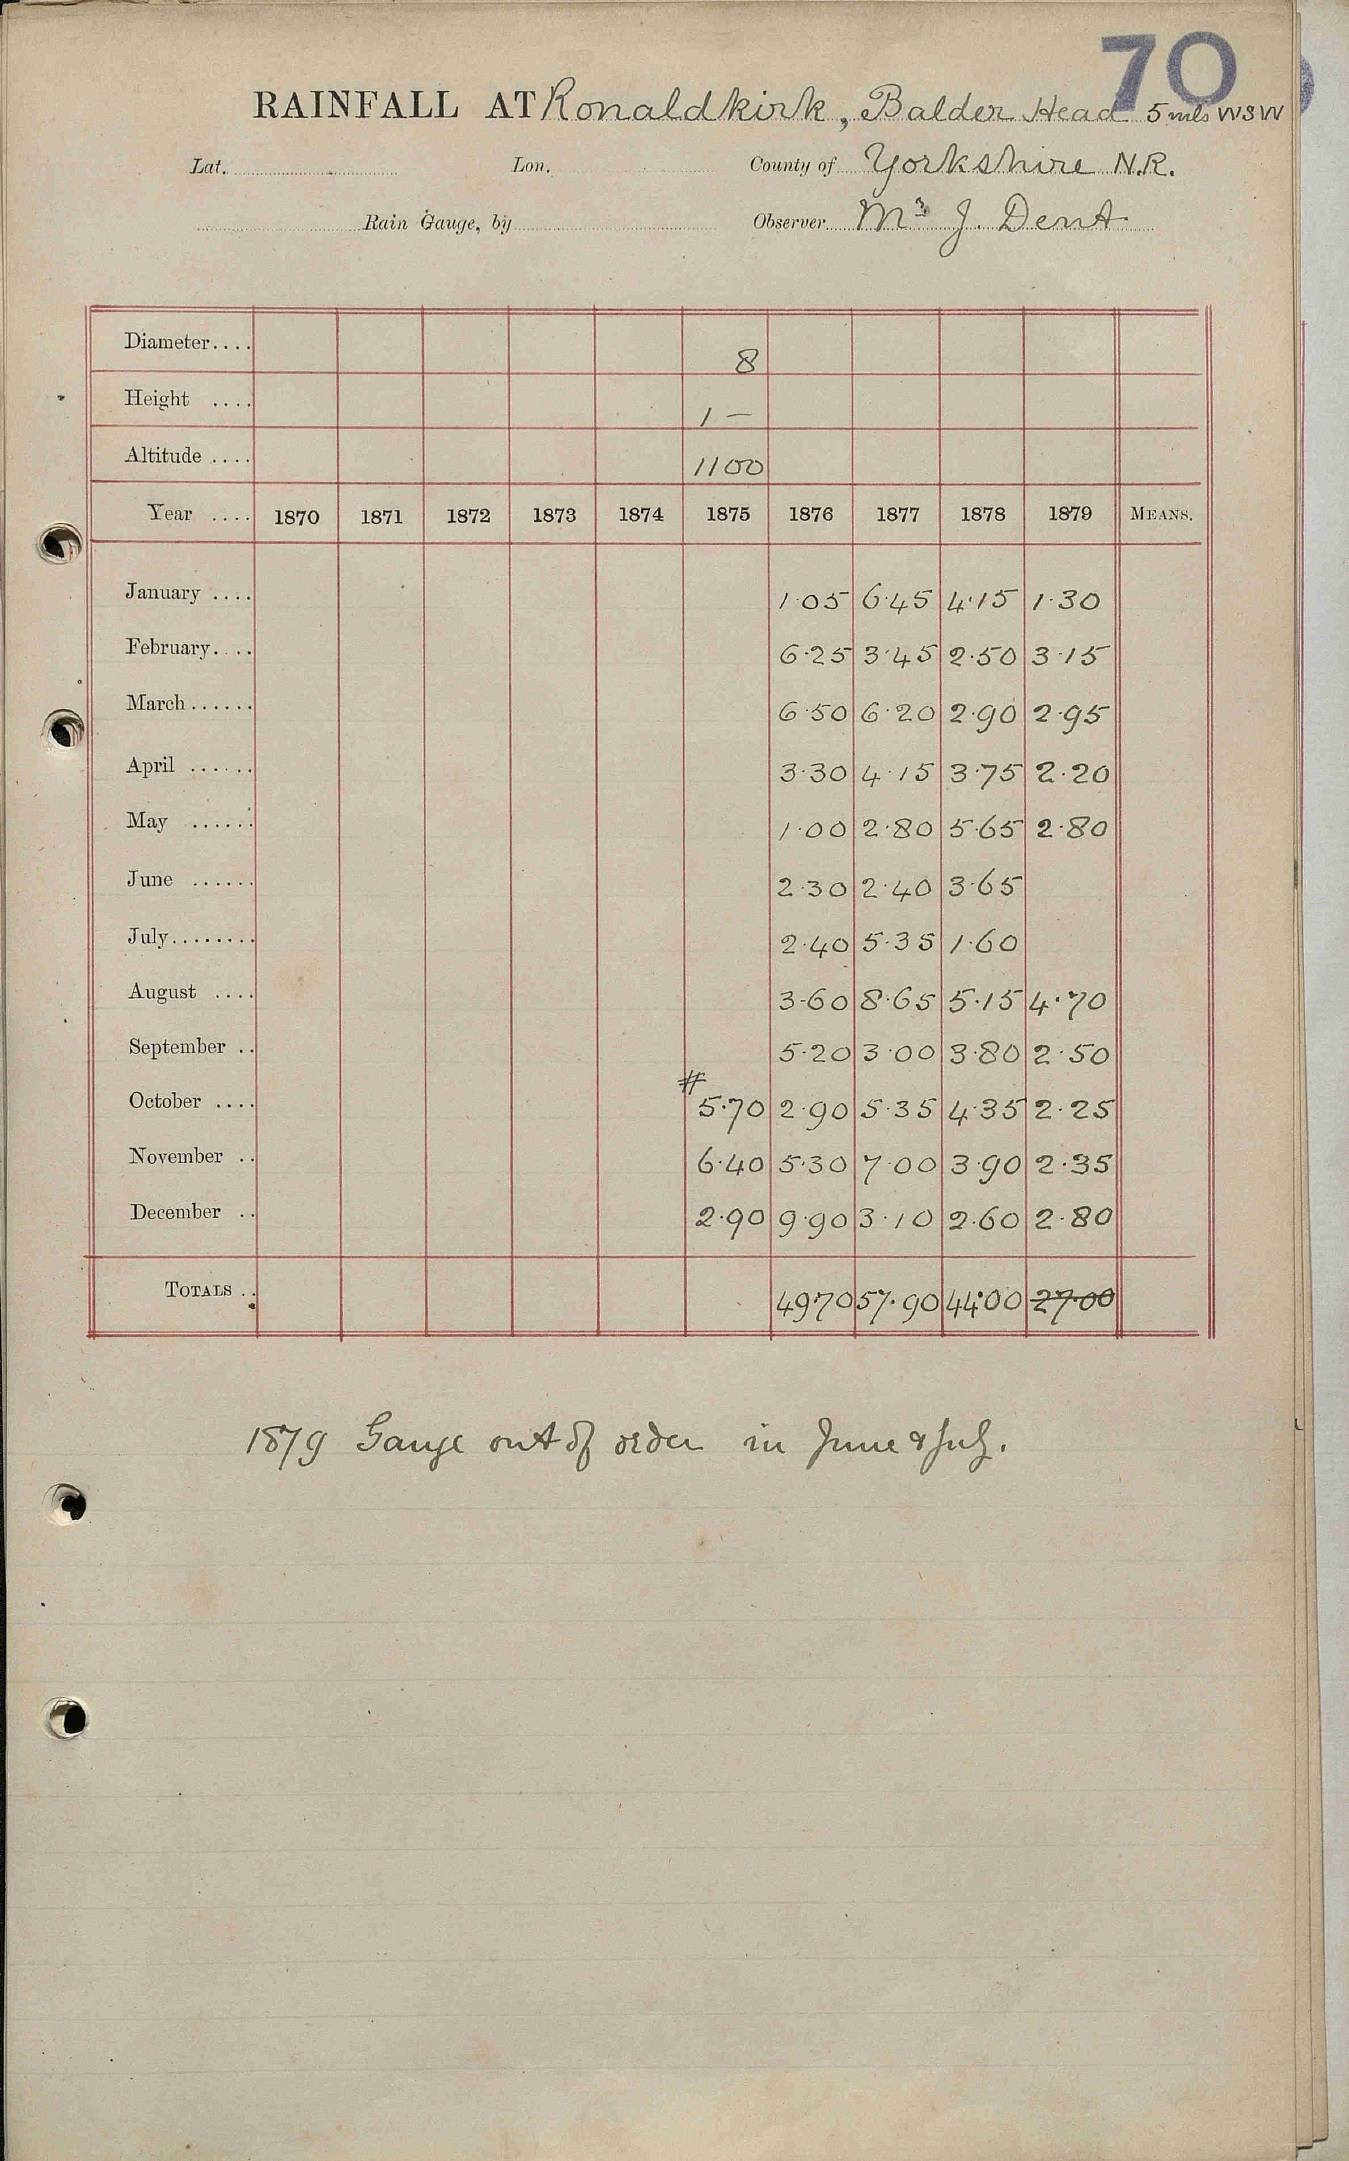 70
RAINFALL AT Ronaldkirk, Balder Head 5 mls WSW
Lat. Lon. County of Yorkshire N.R.
Rain Gauge, by Observer Mr J. Dent
Diameter.... 8
Height .... 1 —
Altitude .... 1100
Year .... 1870 1871 1872 1873 1874 1875 1876 1877 1878 1879 MEANS.
January .... 1.05 6.45 4.15 1.30
February.... 6.25 3.45 2.50 3.15
March...... 6.50 6.20 2.90 2.95
April ...... 3.30 4.15 3.75 2.20
May ...... 1.00 2.80 5.65 2.80
June ...... 2.30 2.40 3.65
July........ 2.40 5.35 1.60
August .... 3.60 8.65 5.15 4.70
September .. 5.20 3.00 3.80 2.50
October .... # 5.70 2.90 5.35 4.35 2.25
November .. 6.40 5.30 7.00 3.90 2.35
December .. 2.90 9.90 3.10 2.60 2.80
TOTALS .. 49.70 57.90 44.00 27.00
1879 Gauge out of order in June & July.